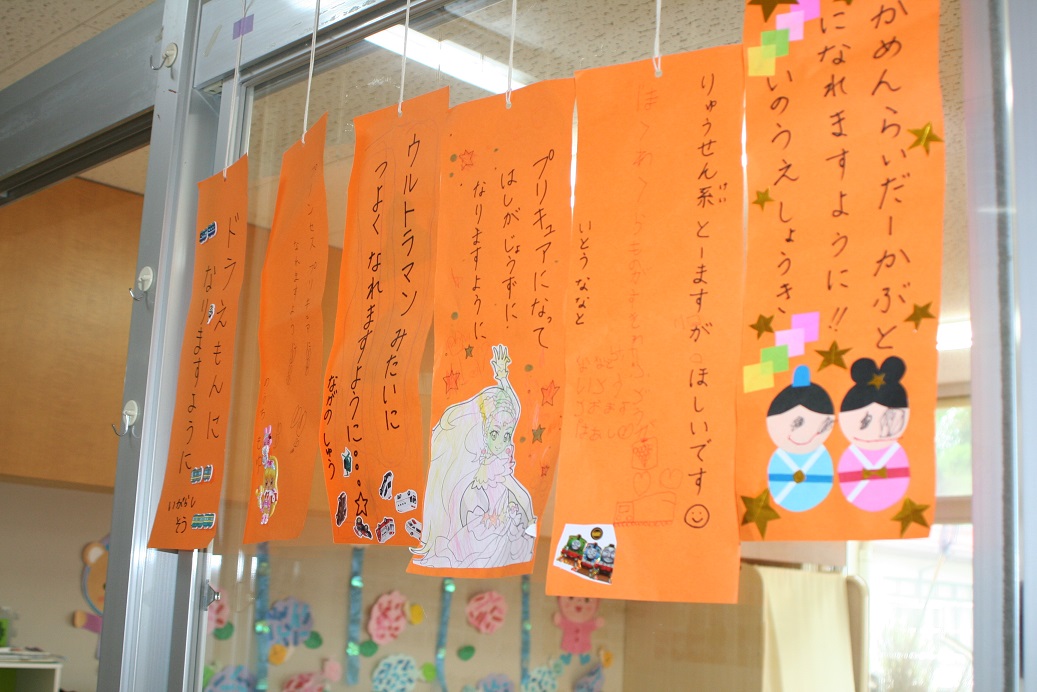 かめんらいだーかぶと
になれますように!!
いのうえ しょうき
りゅうせん系 とーますが ほしいです
けい
いとう ななと
プリキュアになって
はしがじょうずに
なりますように
ウルトラマン みたいに
つよく なれますように・・・
ながの しゅう
ドラえもんに
なりますように
いがなし
そう